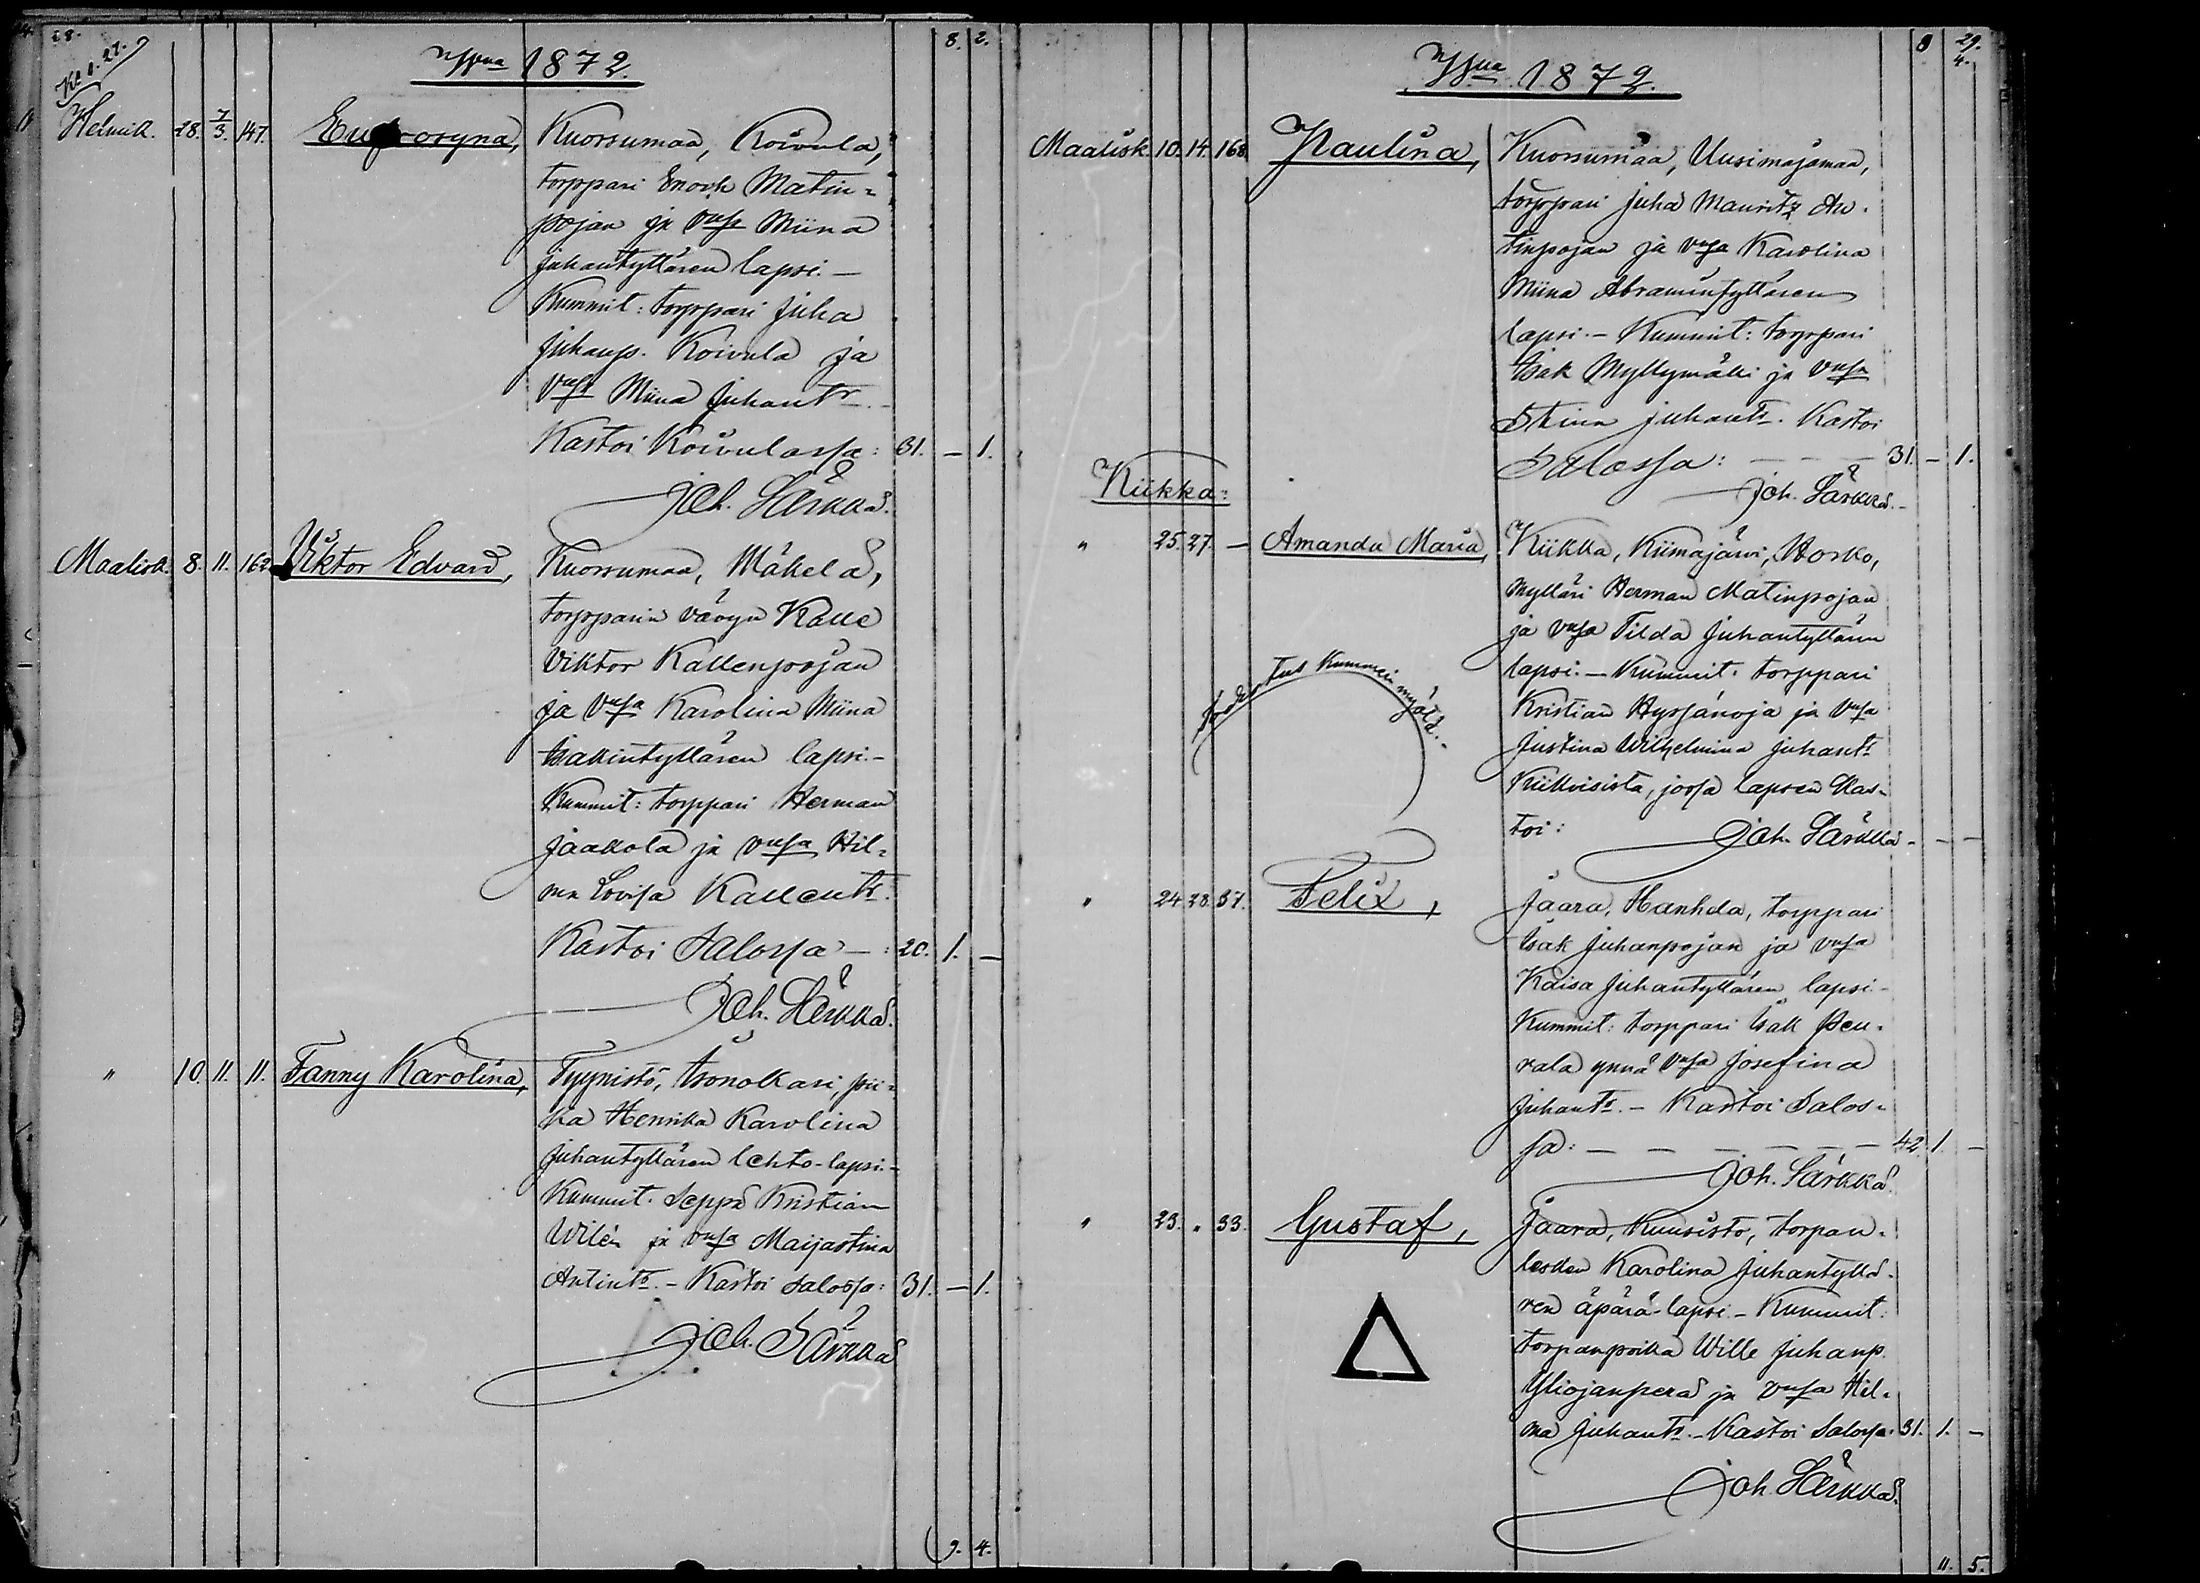 28.
8. 2.
Wnna 1872.
Helmik. 28. 7/3. 147. Eufrosyna, Kuorsumaa, Koivula,
torppari Enoch Matin-
pojan ja vnsa Miina
Juhantyttären lapsi.—
Kummit: torppari Juha
Juhanp. Koivula ja
vnsa Miina Juhantr.—
Kastoi Koivulassa: 31. — 1.
Joh. Särkkä.
Maalisk. 8. 11. 162 Viktor Edvard, Kuorsumaa, Mäkelä,
torpparin vävyn Kalle
Viktor Kallenpojan
ja vnsa Karolina Miina
Isakintyttären lapsi.—
Kummit: torppari Herman
Jaakola ja vnsa Hil-
ma Lovisa Kallentr.
Kastoi Salossa — : 20. 1. —
Joh. Särkkä.
" 10. 11. 11. Fanny Karolina, Tyynistö, Isonokari, pii-
ka Henrika Karolina
Juhantyttären lehto-lapsi.—
Kummit. Seppä Kristian
Wilén ja vnsa Maijastina
Antintr.— Kastoi Salossa: 31. — 1.
Joh. Särkkä
9. 4.
8 29.
4.
Wnna 1872.
Maalisk. 10. 14. 168. Paulina, Kuorsumaa, Uusimajamaa,
torppari Juha Mauritz An-
tinpojan ja vnsa Karolina
Miina Abramintyttären
lapsi.— Kummit: torppari
Isak Myllymäki ja vnsa
Stina Juhantr. Kastoi
Salossa: — — — 31. — 1.
Joh. Särkkä.—
Kiikka:
" 25. 27. — Amanda Maria, Kiikka, Kiimajärvi, Horko,
mylläri Herman Matinpojan
ja vnsa Tilda Juhantyttären
lapsi.— Kummit: torppari
Kristian Hyssänoja ja vnsa
Justina Wilhelmina Juhantr
Kiikoisista, jossa lapsen kas-
toi: Joh. Särkkä. — —
Todistus Kummein myötä.
" 24. 28. 37. Felix, Jaara, Hanhela, torppari
Isak Juhanpojan ja vnsa
Kaisa Juhantyttären lapsi.—
Kummit: torppari Isak Peu-
rala ynnä vnsa Josefina
Juhantr.— Kastoi Salos-
sa: — — — — — — 42. 1. —
Joh. Särkkä.
" 23. " 33. Gustaf, Jaara, Kuusisto, torpan-
lesken Karolina Juhantyttä-
ren äpärä-lapsi.— Kummit.
torpanpoika Wille Juhanp.
Yliojanperä ja vnsa Hil-
ma Juhantr.— Kastoi Salossa. 31. 1. —
Joh. Särkkä.
11. 5.